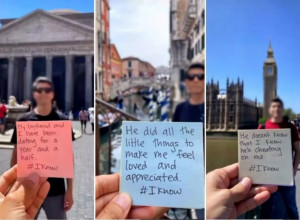 My boyfriend and
I have been
dating for a
year and a
half.
#IKnow
He did all the
little things to
make me feel
loved and
appreciated.
#IKnow
He doesn't know
that I know
he's cheating
on me.
#IKnow